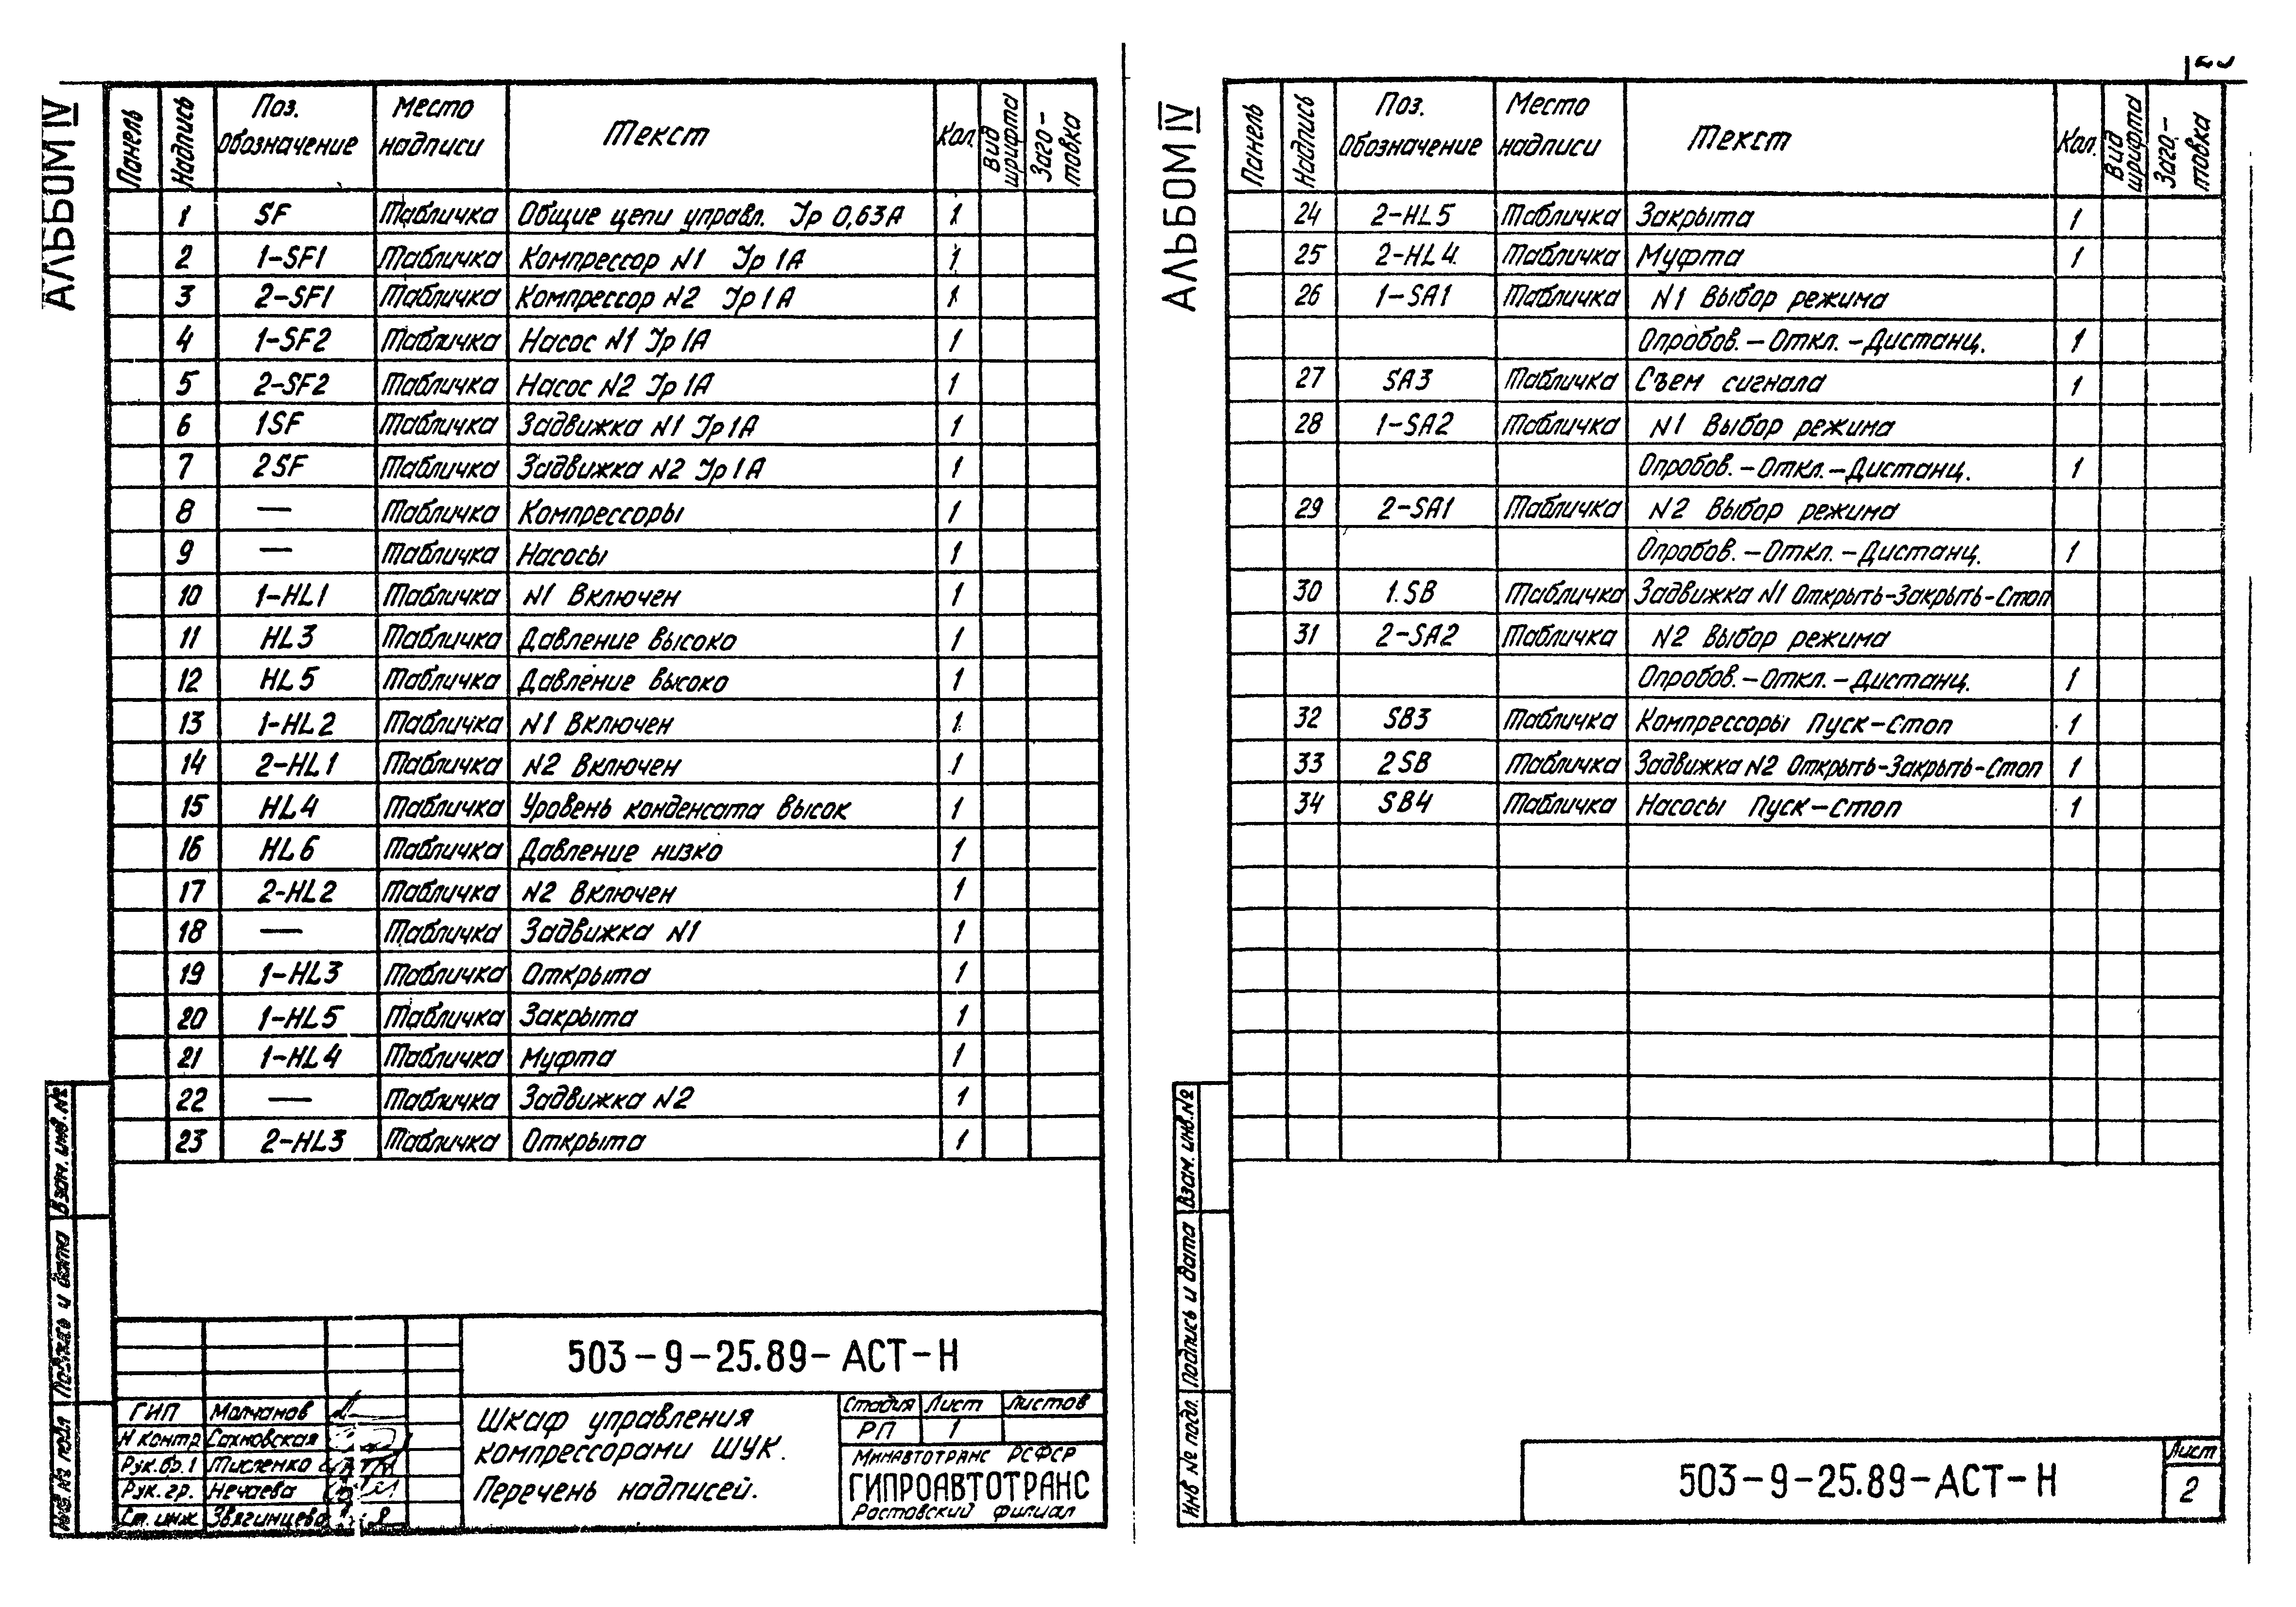 АЛЬБОМ IV
Панель Надпись Поз. обозначение Место надписи Текст Кол. Вид шрифта Заго-товка
1 SF Табличка Общие цепи управл. Iр 0,63А 1
2 1-SF1 Табличка Компрессор N1 Iр 1А 1
3 2-SF1 Табличка Компрессор N2 Iр 1А 1
4 1-SF2 Табличка Насос N1 Iр 1А 1
5 2-SF2 Табличка Насос N2 Iр 1А 1
6 1SF Табличка Задвижка N1 Iр 1А 1
7 2SF Табличка Задвижка N2 Iр 1А 1
8 — Табличка Компрессоры 1
9 — Табличка Насосы 1
10 1-HL1 Табличка N1 Включен 1
11 HL3 Табличка Давление высоко 1
12 HL5 Табличка Давление высоко 1
13 1-HL2 Табличка N1 Включен 1
14 2-HL1 Табличка N2 Включен 1
15 HL4 Табличка Уровень конденсата высок 1
16 HL6 Табличка Давление низко 1
17 2-HL2 Табличка N2 Включен 1
18 — Табличка Задвижка N1 1
19 1-HL3 Табличка Открыта 1
20 1-HL5 Табличка Закрыта 1
21 1-HL4 Табличка Муфта 1
22 — Табличка Задвижка N2 1
23 2-HL3 Табличка Открыта 1
Взам. инв. №
Подпись и дата
Инв. № подл
503-9-25.89-АСТ-Н
ГИП Молчанов
Н контр Сахновская
Рук. бр. 1 Тисленко
Рук. гр. Нечаева
Ст. инж. Звягинцева
Шкаф управления
компрессорами ШУК.
Перечень надписей.
Стадия Лист Листов
РП 1
Минавтотранс РСФСР
ГИПРОАВТОТРАНС
Ростовский филиал
АЛЬБОМ IV
Панель Надпись Поз. обозначение Место надписи Текст Кол. Вид шрифта Заго-товка
24 2-HL5 Табличка Закрыта 1
25 2-HL4 Табличка Муфта 1
26 1-SA1 Табличка N1 Выбор режима
Опробов.-Откл.-Дистанц. 1
27 SA3 Табличка Съем сигнала 1
28 1-SA2 Табличка N1 Выбор режима
Опробов.-Откл.-Дистанц. 1
29 2-SA1 Табличка N2 Выбор режима
Опробов.-Откл.-Дистанц. 1
30 1.SB Табличка Задвижка N1 Открыть-Закрыть-Стоп
31 2-SA2 Табличка N2 Выбор режима
Опробов.-Откл.-Дистанц. 1
32 SB3 Табличка Компрессоры Пуск-Стоп 1
33 2SB Табличка Задвижка N2 Открыть-Закрыть-Стоп 1
34 SB4 Табличка Насосы Пуск-Стоп 1
Взам. инв. №
Подпись и дата
Инв № подл.
503-9-25.89-АСТ-Н
Лист
2